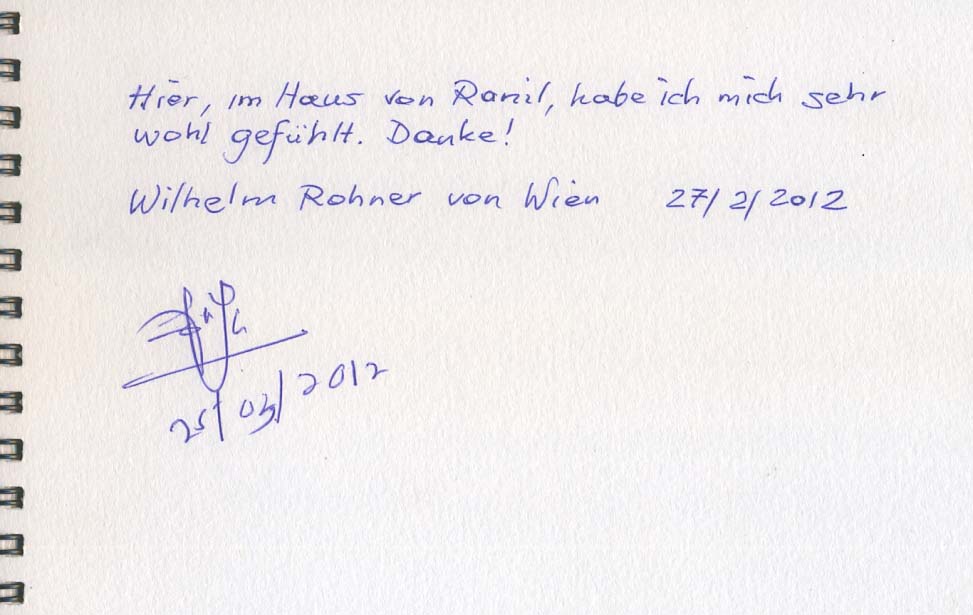 Hier, im Haus von Ranil, habe ich mich sehr
wohl gefühlt. Danke!
Wilhelm Rohner von Wien 27/2/2012
25/03/2012